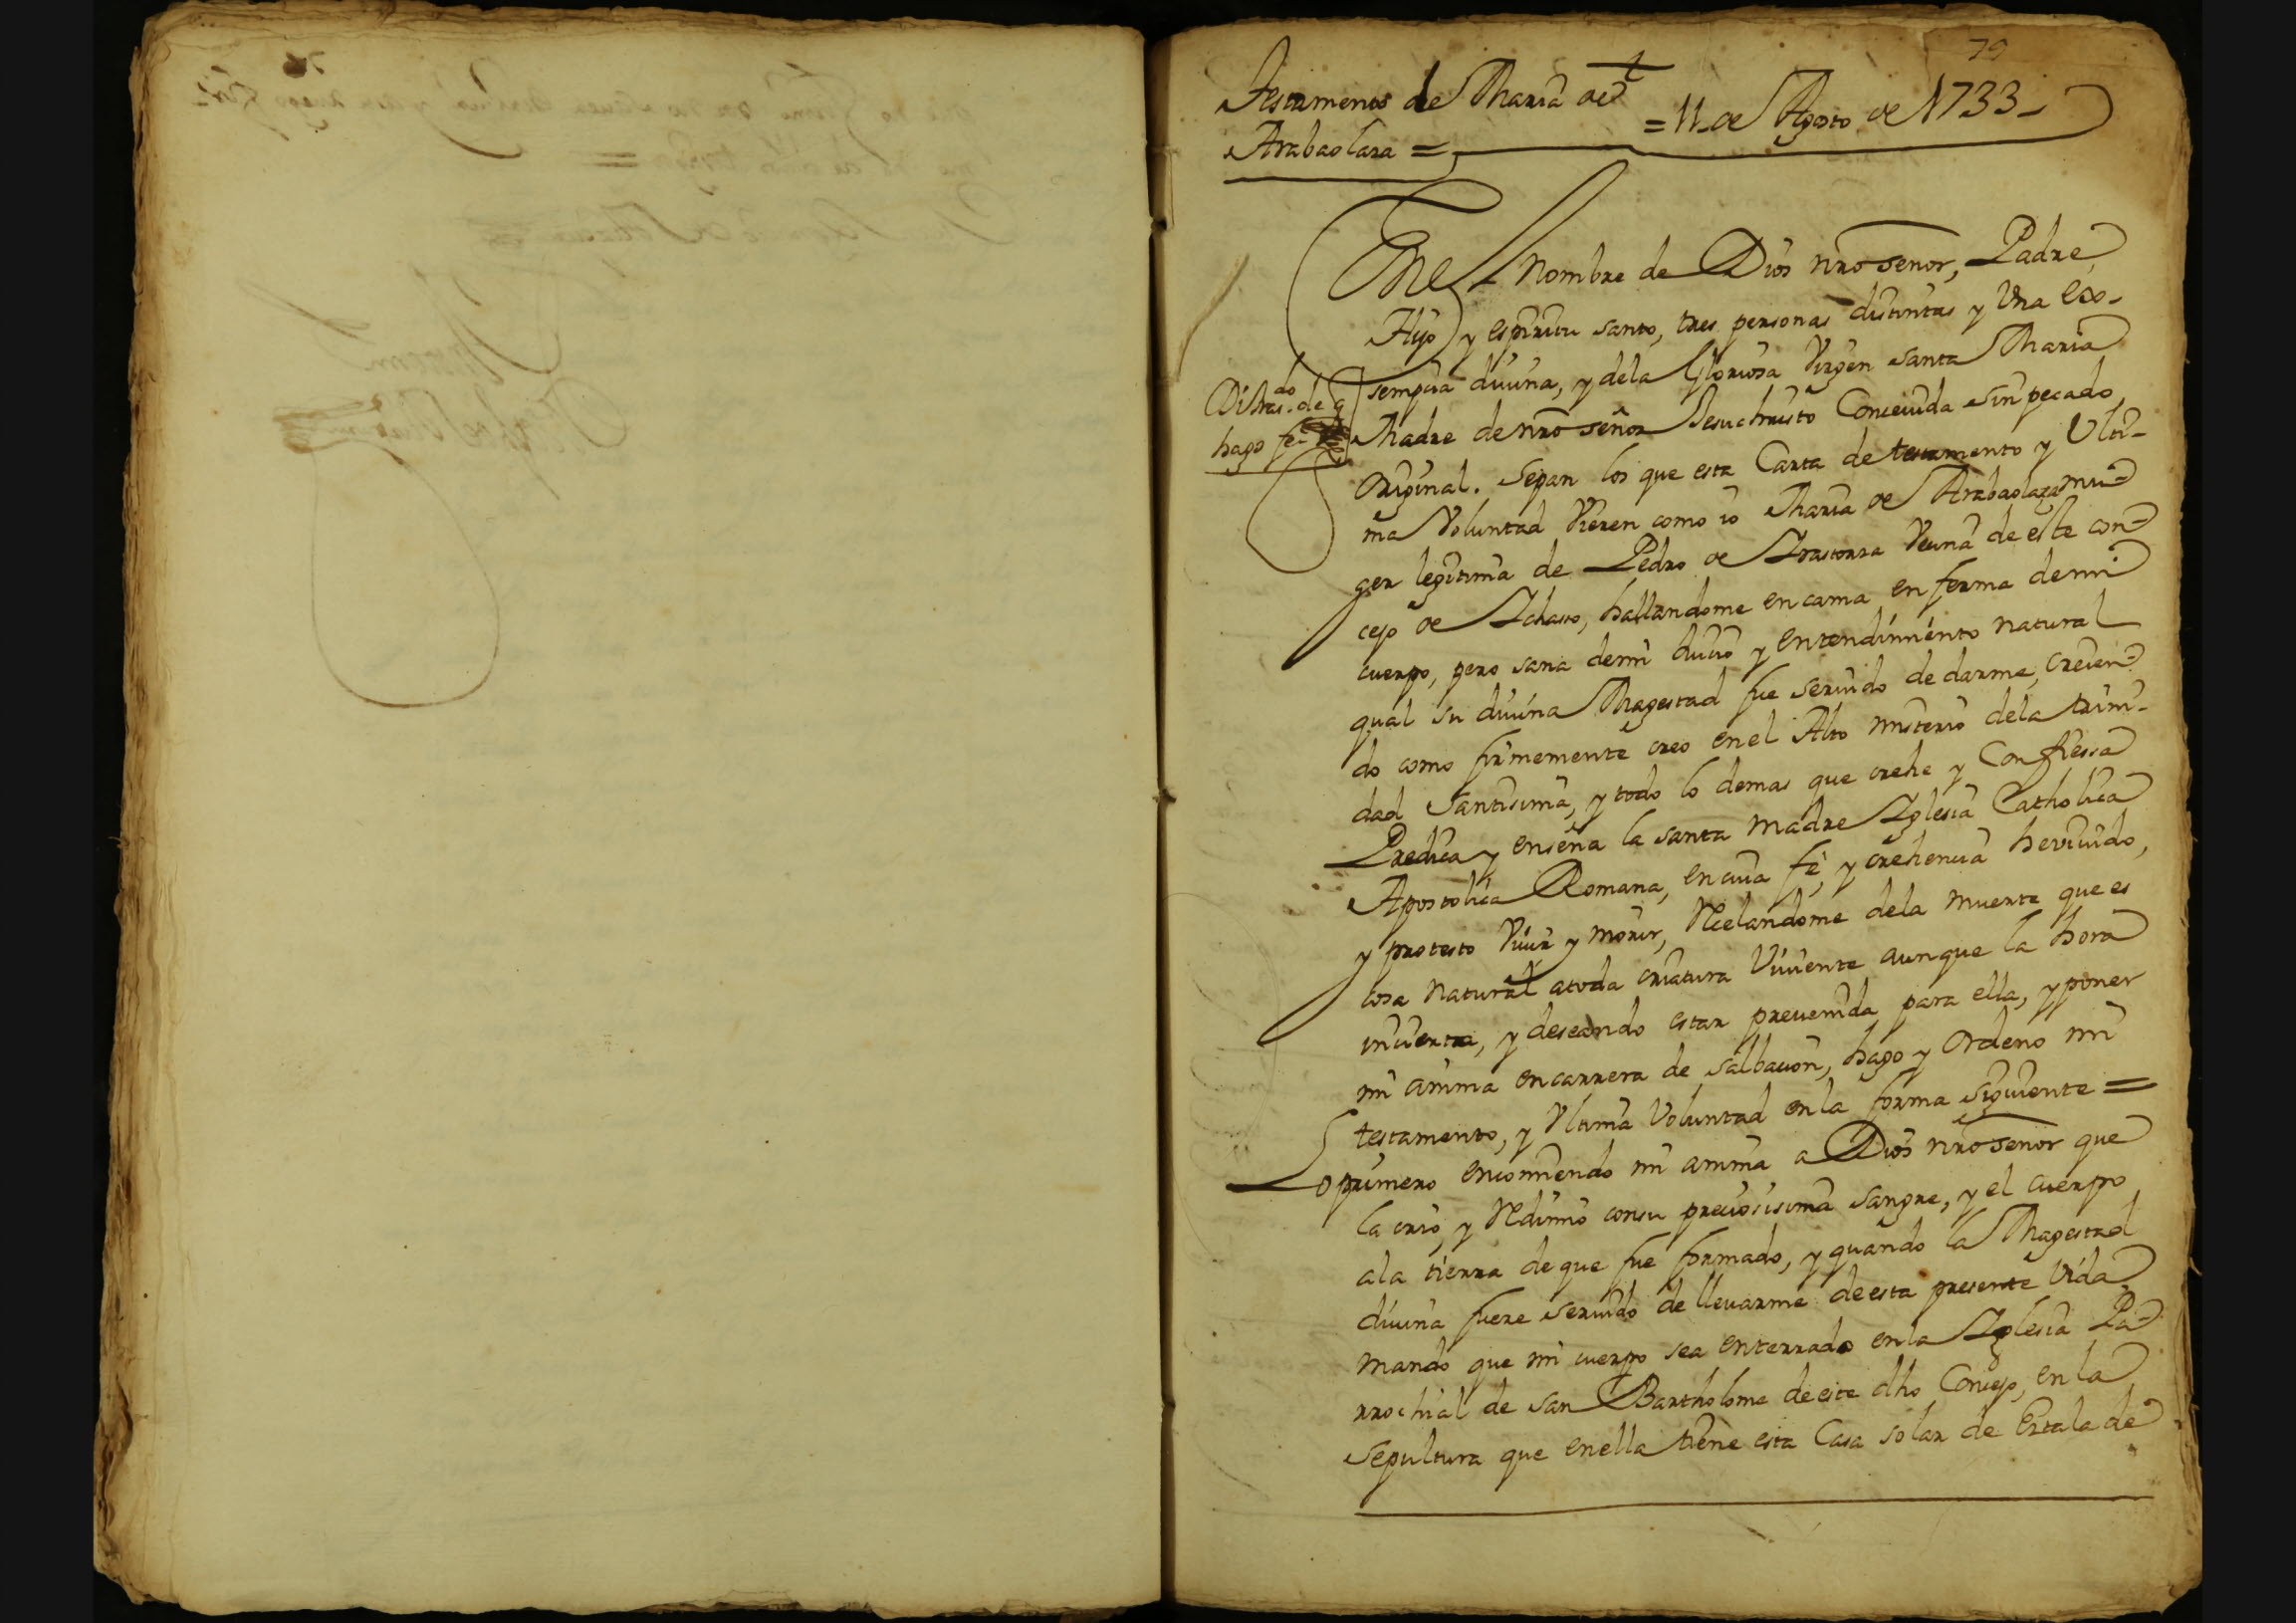 79
Testamento de Maria de
Arabaolaza =
= 11 de Agosto de 1733 -
En el Nombre de Dios nro senor, Padre
Hijo y espiritu santo, tres personas distintas y Una Ex-
sempcia diuina, y dela Gloriosa Virgen santa Maria
Madre de nro señor Jesuchristo Conceuida sin pecado
Original. Sepan los que esta Carta de testamento y Ulti-
ma Voluntad Vieren como io Maria de Arabaolaza mu-
ger legitima de Pedro de Irastorza Vecina de este con-
cejo de Ichaso, hallandome en cama enferma de mi
cuerpo, pero sana de mi Juicio y entendimiento natural
qual su diuina Magestad fue seruido de darme, creien-
do como firmemente creo en el Alto misterio dela trini-
dad Santisima, y todo lo demas que crehe y Confiessa
Predica y enseña la santa madre Iglesia Catholica
Apostolica Romana, en cuia fè, y crehencia he viuido,
y protesto Viuir y morir, Recelandome dela muerte que es
cosa natural atoda criatura Viuiente aunque la hora
incierta, y deseando estar preuenida para ella, y poner
mi anima en carrera de salbacion, hago y Ordeno mi
testamento, y Ultima Voluntad en la forma siguiente =
Lo primero encomiendo mi anima a Dios nro senor que
la crio, y Redimio con su preciosisima sangre, y el cuerpo
ala tierra de que fue formado, y quando la Magestad
diuina fuere seruido de lleuarme de esta presente Vida
mando que mi cuerpo sea enterrado en la Iglesia Pa-
rrochial de san Bartholome de este dho Concejo, en la
sepultura que en ella tiene esta Casa solar de Ertala de
Di tras.do de q
hago fee